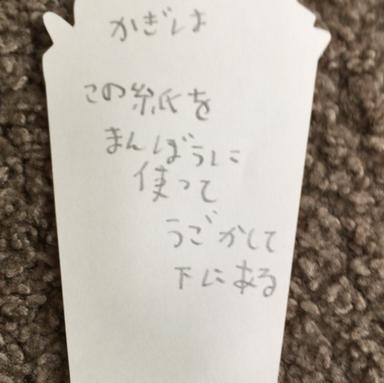 かぎは
この紙を
まんぼうに
使って
うごかして
下にある